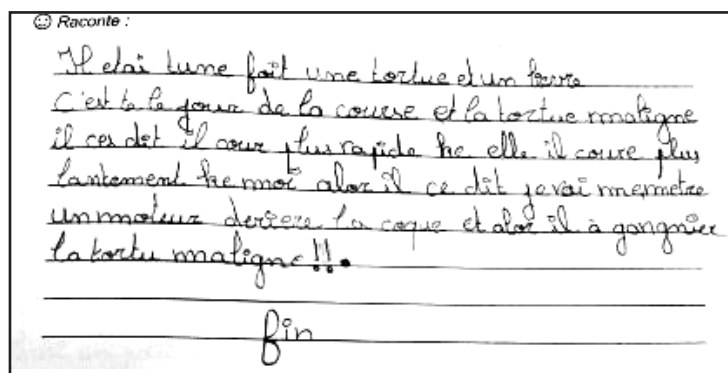 ☺ Raconte :
Il etai tune foit une tortue et un levre
C'est te le jour de la course et la tortue maligne
il ces dit il cour plus rapide ke elle il coure plus
lantement ke moi alor il ce dit je vai memetre
un moteur deriere la coque et alor il à gangnier
la tortu maligne !!.
fin